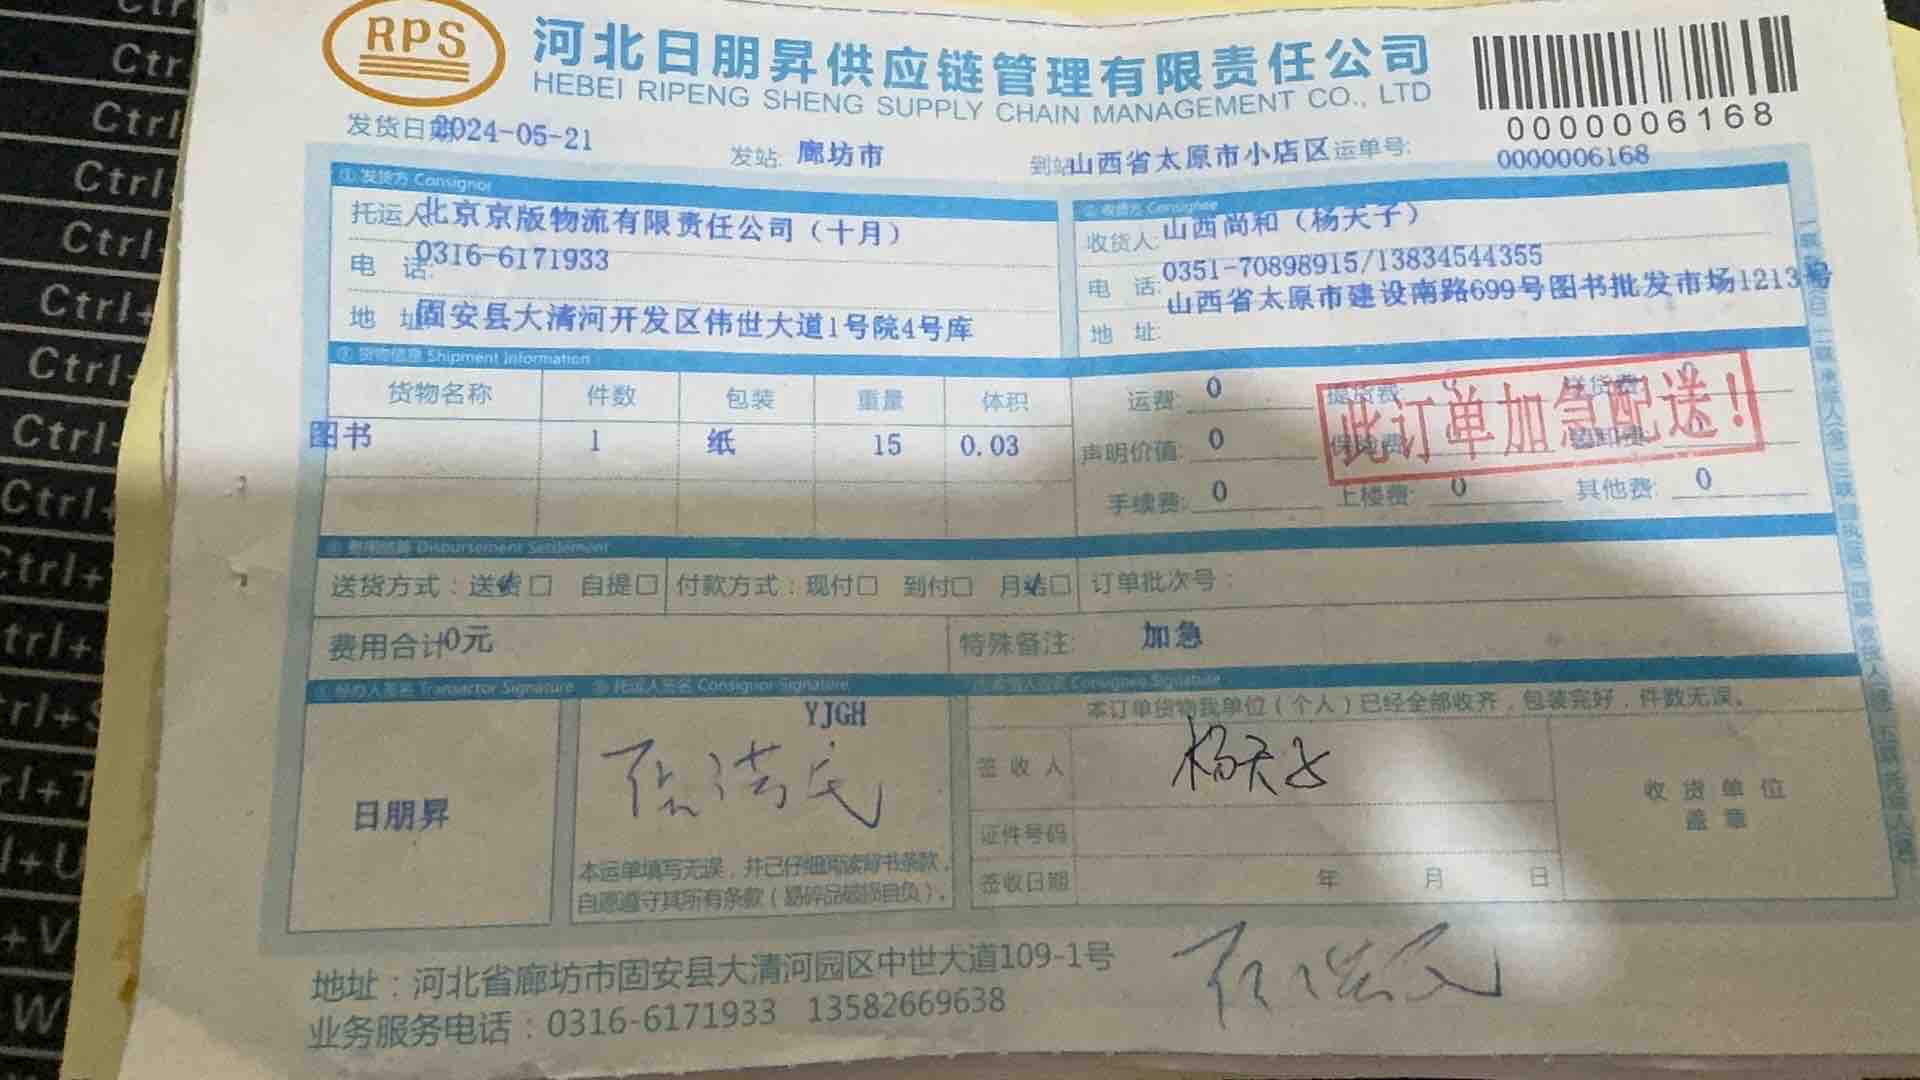 RPS
河北日朋昇供应链管理有限责任公司
HEBEI RIPENG SHENG SUPPLY CHAIN MANAGEMENT CO., LTD
0000006168
发货日期 2024-05-21 发站: 廊坊市 到站 山西省太原市小店区 运单号: 0000006168
① 发货方 Consignor
托运人 北京京版物流有限责任公司（十月）
电 话: 0316-6171933
地 址 固安县大清河开发区伟世大道1号院4号库
② 收货方 Consignee
收货人: 山西尚和（杨天子）
电 话: 0351-70898915/13834544355
地 址: 山西省太原市建设南路699号图书批发市场1213号
③ 货物信息 Shipment Information
货物名称 件数 包装 重量 体积
图书 1 纸 15 0.03
运费: 0 提货费 送货费
声明价值: 0 保险费
手续费: 0 上楼费: 0 其他费: 0
此订单加急配送！
④ 费用结算 Disbursement Settlement
送货方式：送货□ 自提□ 付款方式：现付□ 到付□ 月结□ 订单批次号：
费用合计 0元 特殊备注: 加急
⑤ 经办人签名 Transactor Signature ⑥ 托运人签名 Consignor Signature Consignee Signature
日朋昇
YJGH
本运单填写无误，并已仔细阅读背书条款，
自愿遵守其所有条款（易碎品破损自负）。
本订单货物我单位（个人）已经全部收齐，包装完好，件数无误。
签 收 人 杨天子
证件号码
签收日期 年 月 日
收 货 单 位
盖 章
地址：河北省廊坊市固安县大清河园区中世大道109-1号
业务服务电话：0316-6171933 13582669638
Ctrl
Ctrl
Ctrl
Ctrl
Ctrl
Ctrl+
Ctrl
Ctrl
Ctrl+
Ctrl+